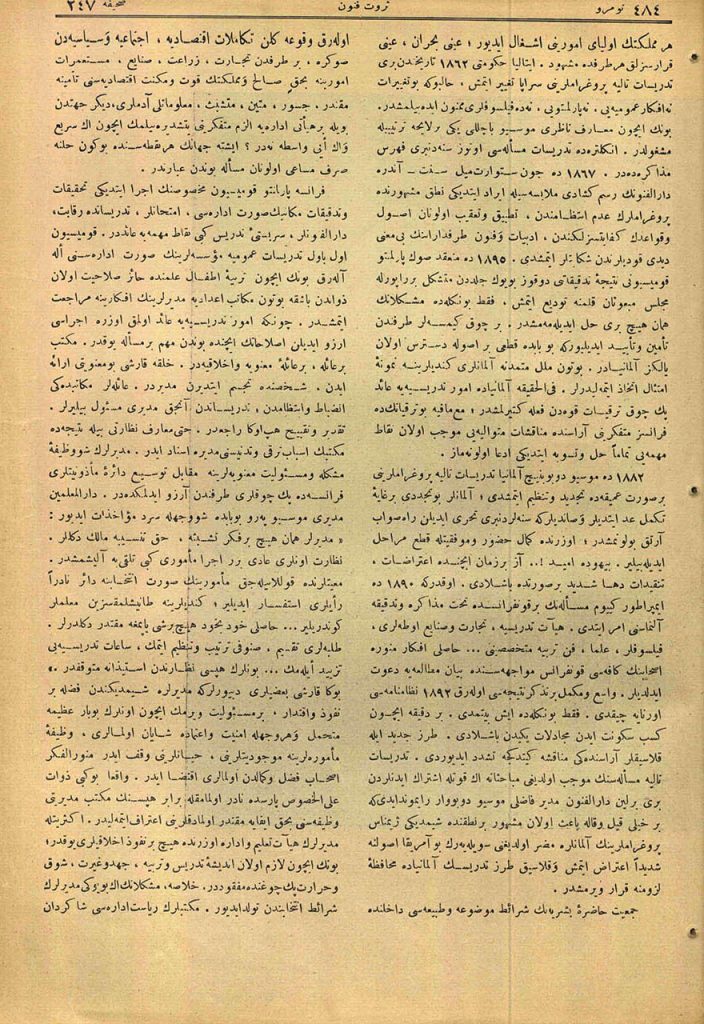 نومرو ٤٨٤
ثروت فنون
صحیفه ٢٤٧
هر مملکتك اولیای امورینی اشغال ایدیور ؛ عینی بحران ، عینی
قرارسزلق هر طرفده مشهود . ایتالیا حکومتی ١٨٦٢ تاریخندن بری
تدریسات تالیه پروغراملرینی سراپا تغییر ایتمش ، حالبوکه بو تغییرات
نه افکار عمومیه‌یی . نه پارلمنتویی ، نه ده فیلسوفلری ممنون ایده‌بیلمشدر .
بونك ایچون معارف ناظری موسیو باچللی یکی بر لایحه ترتیبیله
مشغولدر . انکلتره‌ده تدریسات مسأله‌سی اوتوز سنه‌دنبری فهرس
مذاکره‌ده‌در . ١٨٦٧ ده جون ستوارت میل سنت ــ آندره
دارالفنونك رسم کشادی ملابسه‌سیله ایراد ایتدیکی نطق مشهورنده
پروغراملرك عدم انتظامندن ، تطبیق وتعقیب اولونان اصول
وقواعدك کفایتسزلکندن ، ادبیات وفنون طرفدارانك بی‌معنی
دیدی قودیلرندن شکایتلر ایتمشدی . ١٨٩٥ ده منعقد صوك پارلمنتو
قومیسیونی نتیجهٔ تدقیقاتی دوقوز بویوك جلددن متشکل بر راپورله
مجلس مبعوثان قلمنه تودیع ایتمش ، فقط بونکله‌ده مشکلاتك
همان هیچ بری حل ایدیله‌مه‌مشدر . بر چوق کیمسه‌لر طرفندن
تأمین وتأیید ایدیلیورکه بو بابده قطعی بر اصوله دسترس اولان
یالکز آلمانیادر . بوتون ملل متمدنه آلمانلری کندیلرینه نمونهٔ
امتثال اتخاذ ایتمه‌لیدرلر . فی‌الحقیقه آلمانیاده امور تدریسیه‌یه عائد
پك چوق ترقیات قوه‌دن فعله کتیرلمشدر ؛ مع‌مافیه بو ترقیاتکده
فرانسز متفکرینی آراسنده مناقشات متوالیه‌یی موجب اولان نقاط
مهمه‌یی تماماً حل وتسویه ایتدیکی ادعا اولونه‌ماز .
١٨٨٢ ده موسیو دوبونیچ آلمانیا تدریسات تالیه پروغراملرینی
بر صورت عمیقه‌ده تجدید وتنظیم ایتمشدی ؛ آلمانلر بو تجددی برغایهٔ
تکمل عد ایتدیلر وصاندیلرکه سنه‌لردنبری تحری ایدیلن راه صواب
آرتق بولونمشدر ؛ اوزرنده کمال حضور وموفقیتله قطع مراحل
ایدیله‌بیلیر . بیهوده امید !.. آز بر زمان ایچنده اعتراضات ،
تنقیدات دها شدید بر صورتده باشلادی . اوقدرکه ١٨٩٠ ده
ایمپراطور کیوم مسأله‌نك بر قونفرانسده تحت مذاکره وتدقیقه
آلنماسنی امر ایتدی . هیأت تدریسیه ، تجارت وصنایع اوطه‌لری ،
فیلسوفلر ، علما ، فن تربیه متخصصینی ... حاصلی افکار منوره
اصحابنك کافه‌سی قونفرانس مواجهه‌سنده بیان مطالعه‌یه دعوت
ایدلدیلر . واسع ومکمل بر تذکر نتیجه‌سی اوله‌رق ١٨٩٢ نظامنامه‌سی
اورتایه چیقدی . فقط بونکله‌ده ایش بیتمدی . بر دقیقه ایچون
کسب سکونت ایدن مجادلات یکیدن باشلادی . طرز جدید ایله
قلاسیقلر آراسنده‌کی مناقشه کیتدکجه تشدد ایدیوردی . تدریسات
تالیه مسأله‌سنك موجب اولدیغی مباحثاته اك قوتله اشتراك ایدنلردن
بری برلین دارالفنون مدیر فاضلی موسیو دوبووار رایموندایدی‌که
بر خیلی قیل وقاله باعث اولان مشهور بر نطقنده شیمدیکی ژیمناس
پروغراملرینك آلمانلره مضر اولدیغنی سویله‌یه‌رك بو آمریقا اصولنه
شدیداً اعتراض ایتمش وقلاسیق طرز تدریسك آلمانیاده محافظهٔ
لزومنه قرار ویرمشدر .
جمعیت حاضرهٔ بشریه‌نك شرائط موضوعه وطبیعه‌سی داخلنده
اوله‌رق وقوعه کلن تکاملات اقتصادیه ، اجتماعیه وسیاسیه‌دن
صوکره ، بر طرفدن تجارت ، زراعت ، صنایع ، مستعمرات
امورینه بحق صالح ومملکتك قوت ومکنت اقتصادیه‌سنی تأمینه
مقتدر . جسور ، متین ، متشبث ، معلوماتلی آدملری ، دیکر جهتدن
بویله بر هیأتی اداره‌یه الزم متفکرینی یتشدیره‌بیلمك ایچون اك سریع
واك ایی واسطه نه‌در ؟ ایشته جهانك هر نقطه‌سنده بوکون حلنه
صرف مساعی اولونان مسأله بوندن عبارتدر .
فرانسه پارلمنتو قومیسیون مخصوصنك اجرا ایتدیکی تحقیقات
وتدقیقات مکاتبك صورت اداره‌سی ، امتحانلر ، تدریساتده رقابت ،
دارالفونلر ، سربستیٔ تدریس کبی نقاط مهمه‌یه عائددر . قومیسیون
اول باول تدریسات عمومیه مؤسسه‌لرینك صورت اداره‌سنی اله
آله‌رق بونك ایچون تربیهٔ اطفال علمنده حائز صلاحیت اولان
ذواتدن باشقه بوتون مکاتب اعدادیه مدیرلرینك افکارینه مراجعت
ایتمشدر . چونکه امور تدریسیه‌یه عائد اولمق اوزره اجراسی
آرزو ایدیلن اصلاحاتك ایچنده بوندن مهم بر مسأله یوقدر . مکتب
بر عائله ، بر عائلهٔ معنویه واخلاقیه‌در . خلقه قارشی بو معنویتی ارائه
ایدن . شخصنده تجسم ایتدیرن مدیردر . عائله‌لر مکاتبده‌کی
انضباط وانتظامدن ، تدریساتدن آنجق مدیری مسئول بیلیرلر .
تقدیر وتقبیح هپ اوکا راجعدر . حتی معارف نظارتی بیله نتیجه‌ده
مکتبك اسباب ترقی وتدنیسنی مدیره اسناد ایدر . مدیرلرك شو وظیفهٔ
مشکله ومسئولیت معنویه‌لرینه مقابل توسیع دائرهٔ مأذونیتلری
فرانسه‌ده پك چوقلری طرفندن آرزو ایدلمکده‌در . دارالمعلمین
مدیری موسیو په‌رو بو بابده شو وجهله سرد مؤاخذات ایدیور :
« مدیرلر همان هیچ بر فکر تشبثه ، حق تنسیبه مالك دکللر .
نظارت اونلری عادی برر اجرا مأموری کبی تلقی‌یه آلیشمشدر .
معیتلرنده قوللانیله‌جق مأمورینك صورت انتخابنه دائر نادراً
رأیلری استفسار ایدیلیر ؛ کندیلرینه طانیشلمقسزین معلملر
کوندریلیر ... حاصلی خود بخود هیچ برشی یاپمغه مقتدر دکلدرلر .
طلبه‌لری تقسیم . صنوفی ترتیب وتنظیم ایتمك ، ساعات تدریسیه‌یی
تزیید ایله‌مك ... بونلرك هپسی نظارتدن استیذانه متوقفدر »
بوکا قارشی بعضیلری دییورلرکه مدیرلره شیمدیکندن فضله بر
نفوذ واقتدار . بر مسئولیت ویرمك ایچون اونلرك بو بار عظیمه
متحمل وهر وجهله امنیت واعتماده شایان اولمالری ، وظیفهٔ
مأموره‌لرینه موجودیتلرینی ، حیاتلرینی وقف ایدر منورالفکر
اصحاب فضل وکمالدن اولمالری اقتضا ایدر . واقعا بو کبی ذوات
علی‌الخصوص پارسده نادر اولمامقله برابر هپسنك مکتب مدیرتی
وظیفه‌سنی بحق ایفایه مقتدر اولمادقلرینی اعتراف ایتمه‌لیدر . اکثریتله
مدیرلرك هیأت تعلیم واداره اوزرنده هیچ بر نفوذ اخلاقیلری یوقدر ؛
بونك ایچون لازم اولان اندیشهٔ تدریس وتربیه ، جهد وغیرت ، شوق
وحرارت پك چوغنده مفقوددر . خلاصه ، مشکلاتك اك بویوکی مدیرلرك
شرائط انتخابندن تولد ایدیور . مکتبلرك ریاست اداره‌سی شاکردان